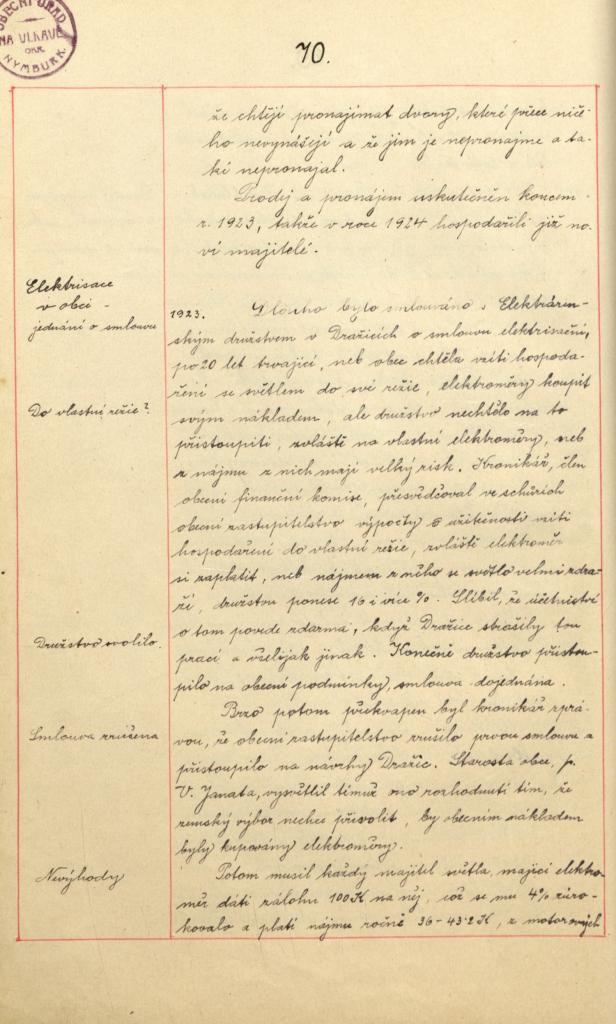 OBECNÍ ÚŘAD
NA VLKAVĚ
OKR.
NYMBURK.
70.
že chtějí pronajímat dvory, které přece ničé-
ho nevynášejí a že jim je nepronajme a ta-
ké nepronajal.
Prodej a pronájem uskutečněn koncem
r. 1923, takže v roce 1924 hospodařili již no-
ví majitelé.
Elektrisace
v obci -
jednání o smlouvu
1923. Dlouho bylo smlouváno s Elektráren-
ským družstvem v Dražicích o smlouvu elektrisační,
po 20 let trvající, neb obec chtěla vzíti hospoda-
ření se světlem do své režie, elektroměry koupit
Do vlastní režie?
svým nákladem, ale družstvo nechtělo na to
přistoupiti, zvláště na vlastní elektroměry, neb
z nájmu z nich mají velký zisk. Kronikář, člen
obecní finanční komise, přesvědčoval ve schůzích
obecní zastupitelstvo výpočty o užitečnosti vzíti
hospodaření do vlastní režie, zvláště elektroměr
si zaplatit, neb nájmem z něho se světlo velmi zdra-
ží, družstvu ponese 16 i více %. Slíbil, že účetnictví
o tom povede zdarma, když Dražice strašily tou
Družstvo svolilo.
prací a všelijak jinak. Konečně družstvo přistou-
pilo na obecní podmínky, smlouva dojednána.
Brzo potom překvapen byl kronikář zprá-
Smlouva zrušena
vou, že obecní zastupitelstvo zrušilo prvou smlouvu a
přistoupilo na návrhy Dražic. Starosta obce, p.
V. Janata, vysvětlil rozhodnutí tím, že
zemský výbor nechce přivolit, by obecním nákladem
byly kupovány elektroměry.
Nevýhody
Potom musil každý majitel světla, mající elektro-
měr dáti zálohu 100 K na něj, což se mu 4% zúro-
kovalo a platí nájmu ročně 36 - 43·2 K, z motorových